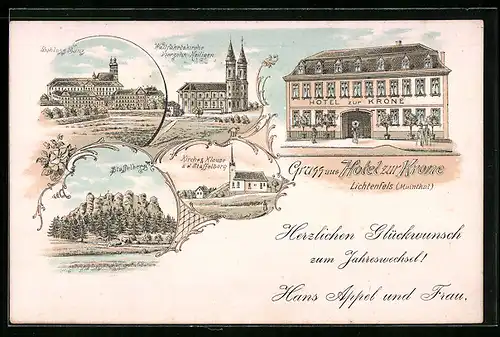 Schloss Banz
Wallfahrtskirche
Vierzehn-Heiligen
HOTEL zur KRONE
Staffelberg
Kirche u. Klause
a. d. Staffelberg
Gruss aus Hotel zur Krone
Lichtenfels (Mainthal)
Herzlichen Glückwunsch
zum Jahreswechsel!
Hans Appel und Frau.